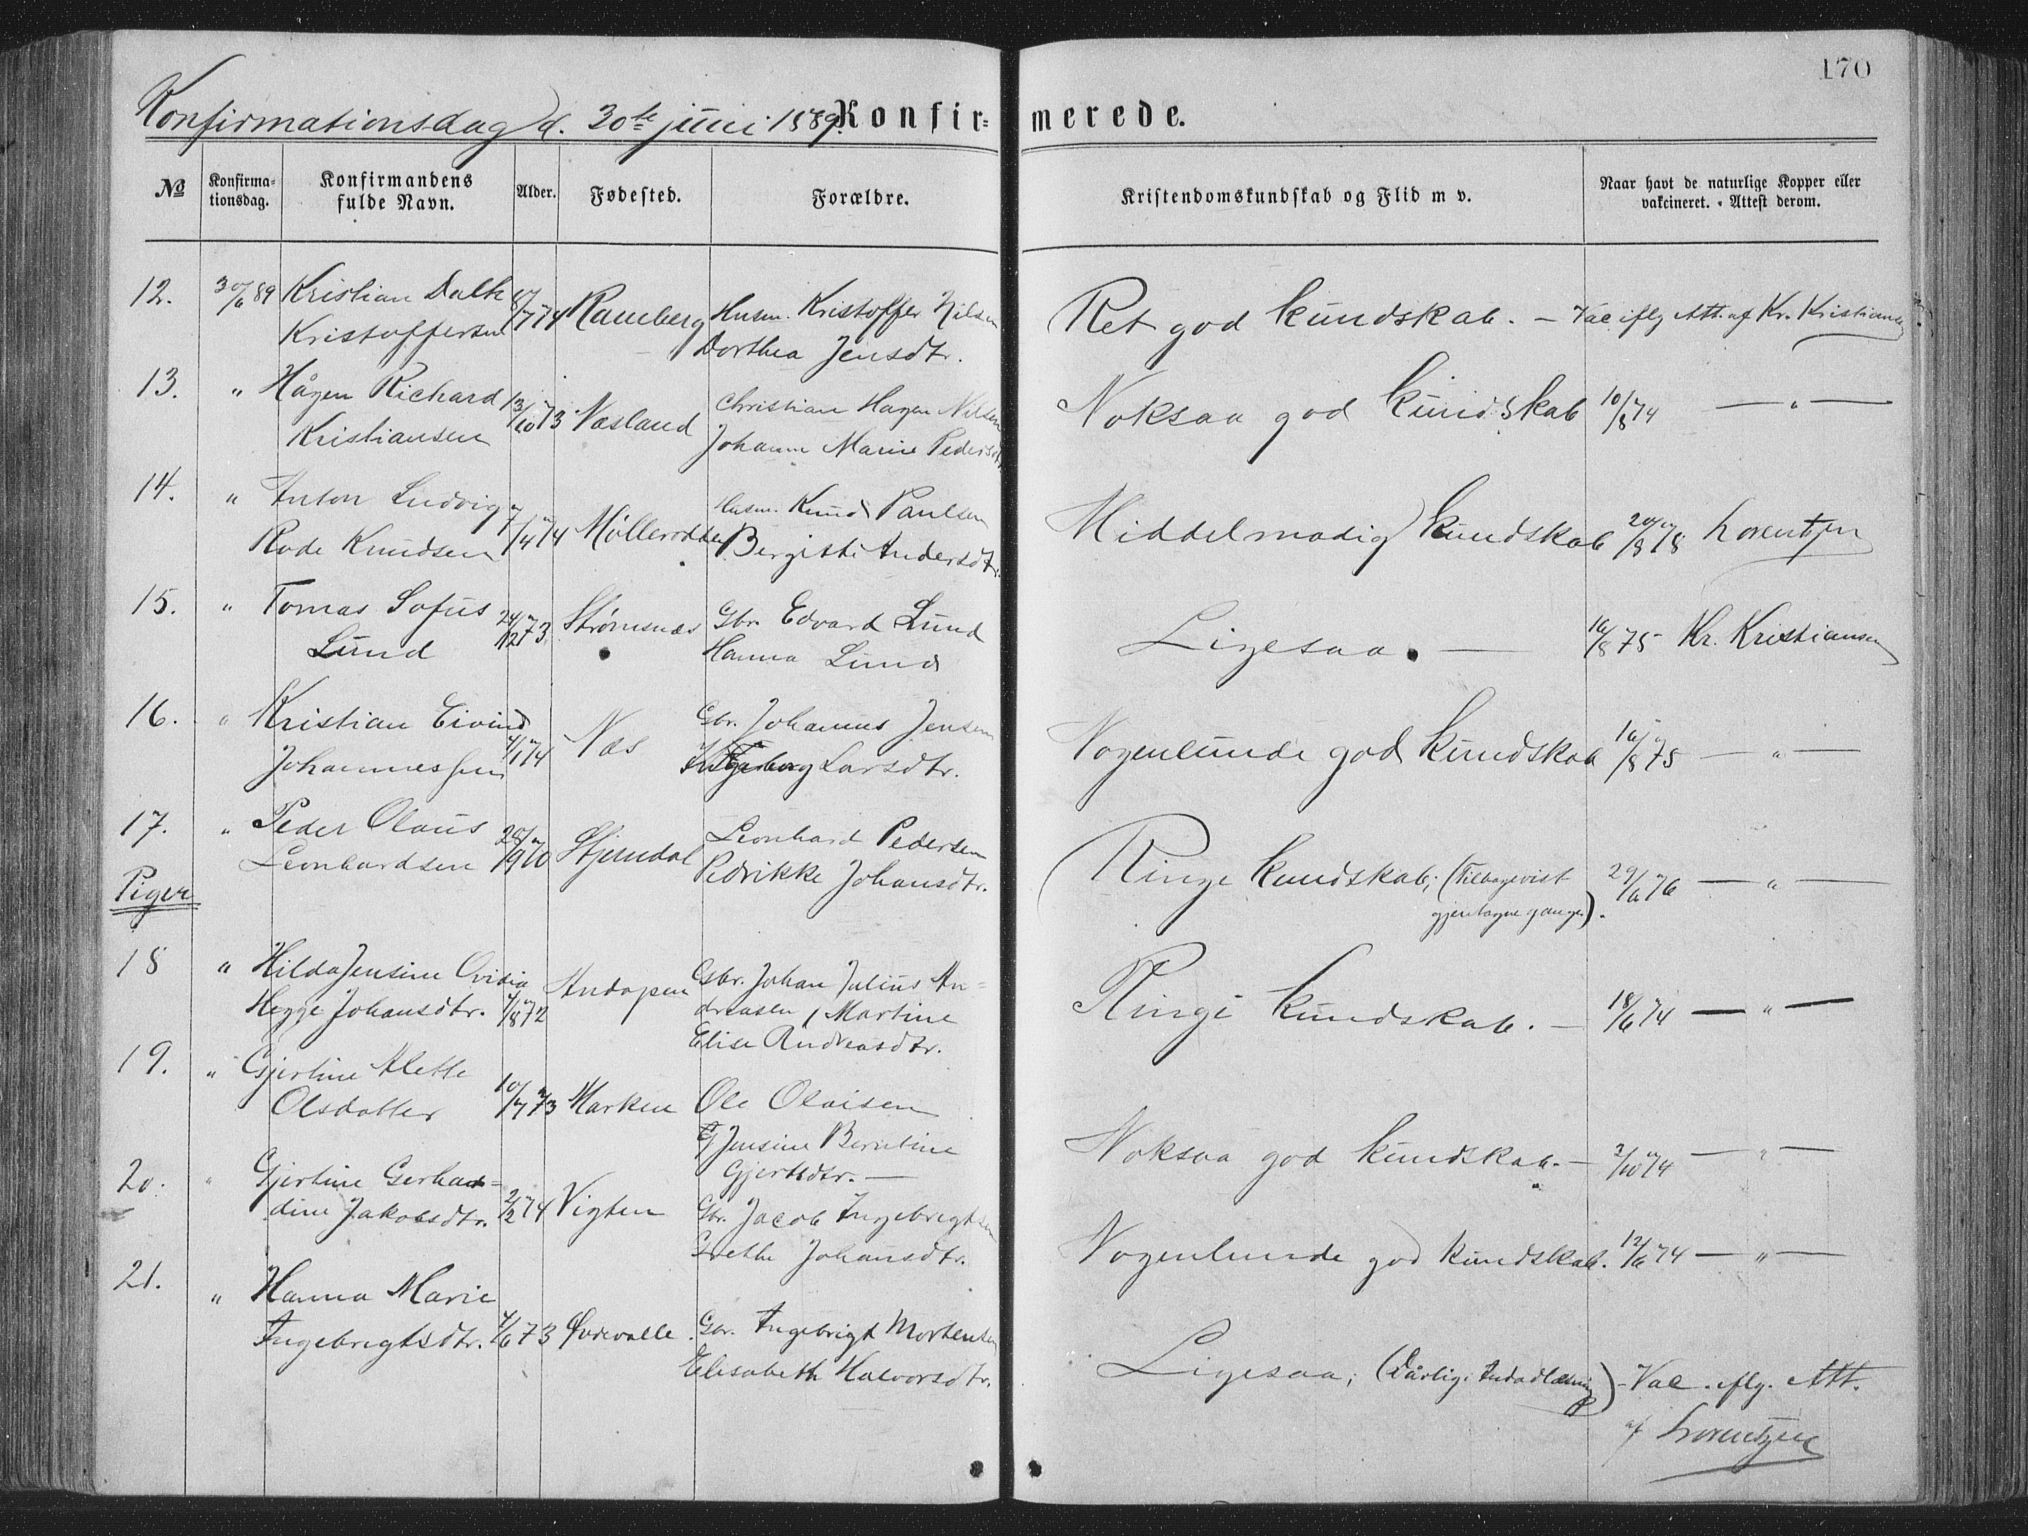 170
Konfirmationsdag d. 30te juni 1889. Konfir= merede.
No Konfirma=tionsdag. Konfirmandens fulde Navn. Alder. Fødested. Forældre. Kristendomskundskab og Flid m v. Naar havt de naturlige Kopper eller vakcineret. Attest derom.
12. 30/6 89 Kristian Kristoffersen 74 Ramberg Husm. Kristoffer Nilsen
Dorthea Jensdtr. Ret god kundskab. — Vac iflg Att. af Kr. Kristiansen
13. " Hågen Richard 13/10 73 Næsland Christian Hagen Nilsen
Kristiansen Johanna Marie Pedersdtr. Noksaa god kundskab 10/8 74 — " —
14. " Anton Ludvig 7/4 74 Husm. Knud Paulsen
Rode Knudsen Andersdtr. Middelmadig kundskab 78 Lorentzen
15. " Tomas Sofus 24/12 73 Strømsnæs Gbr. Edvard Lund
Lund Hanna Lund Ligesaa. — 16/8 75 Kr. Kristiansen
16. " Kristian Eivind 74 Næs Gbr. Johannes Jensen
Johannessen Larsdtr. Nogenlunde god kundskab 16/8 75 — " —
17. " Peder Olaus 70 Leonhard Pedersen
Leonhardsen Pedrikke Johansdtr. Ringe kundskab; (Tilbagevist
gjentagne gange). 29/6 76 — " —
Piger
18 " Hilda Jensine Ovidia Andopen Gbr. Johan Julius An=
Hegge Johansdtr. 72 dreasen, Martine
Elise Andreasdtr. Ringe kundskab. — 18/6 74 — " —
19. " Gjertine Mette
Olsdatter 10/7 73 Marken Ole Olaisen
Jensine Berntine
Gjertsdtr. — Noksaa god kundskab. — 3/10 74 — " —
20. " Gjertine Gerhar=
dine Jakobsdtr. 2/2 74 Vigten Gbr. Jacob Ingebrigtsen
Grethe Johansdtr. Nogenlunde god kundskab. 12/6 74 — " —
21. " Hanna Marie
Ingebrigtsdtr. 73 Gbr. Ingebrigt Mortensen
Elisabeth Halvorsdtr. Ligesaa; (Dårlig Indadlæsning) — Vac. iflg. Att.
af Lorentzen